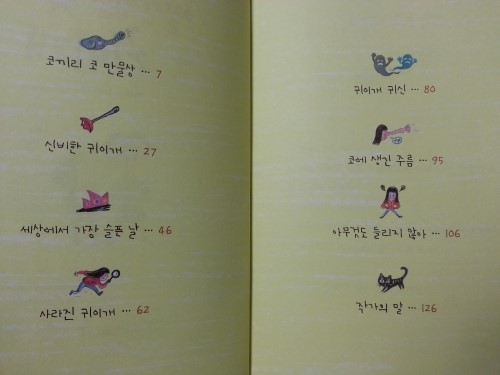 코끼리 코 만물상 … 7
신비한 귀이개 … 27
세상에서 가장 슬픈 날 … 46
사라진 귀이개 … 62
귀이개 귀신 … 80
코에 생긴 주름 … 95
아무것도 들리지 않아 … 106
작가의 말 … 126